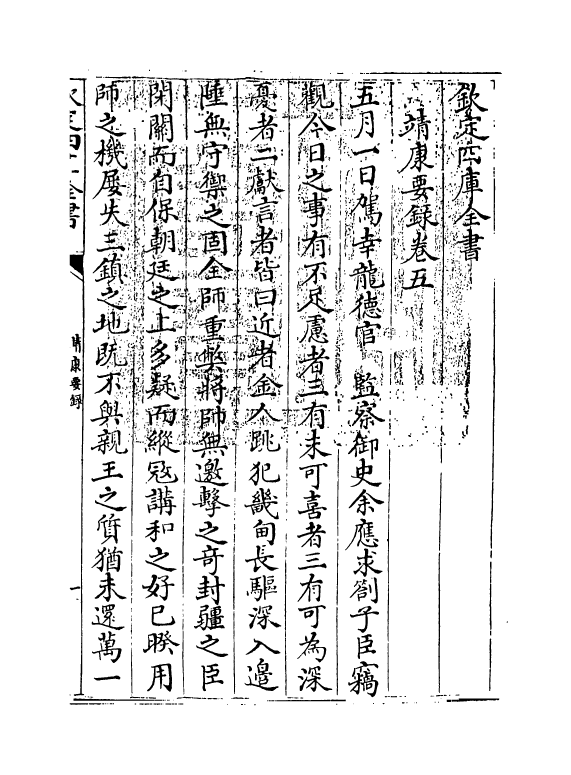 欽定四庫全書
靖康要録卷五
五月一日駕幸龍德宫　監察御史余應求劄子臣竊
觀今日之事有不足慮者三有未可喜者三有可為深
憂者二獻言者皆曰近者金人跳犯畿甸長驅深入邉
陲無守禦之固金師重獘將帥無邀擊之竒封疆之臣
閉關而自保朝廷之上多疑而縱冦講和之好已暌用
師之機屡失三鎮之地既不與親王之質猶未還萬一
欽定四庫全書
靖康要録
一